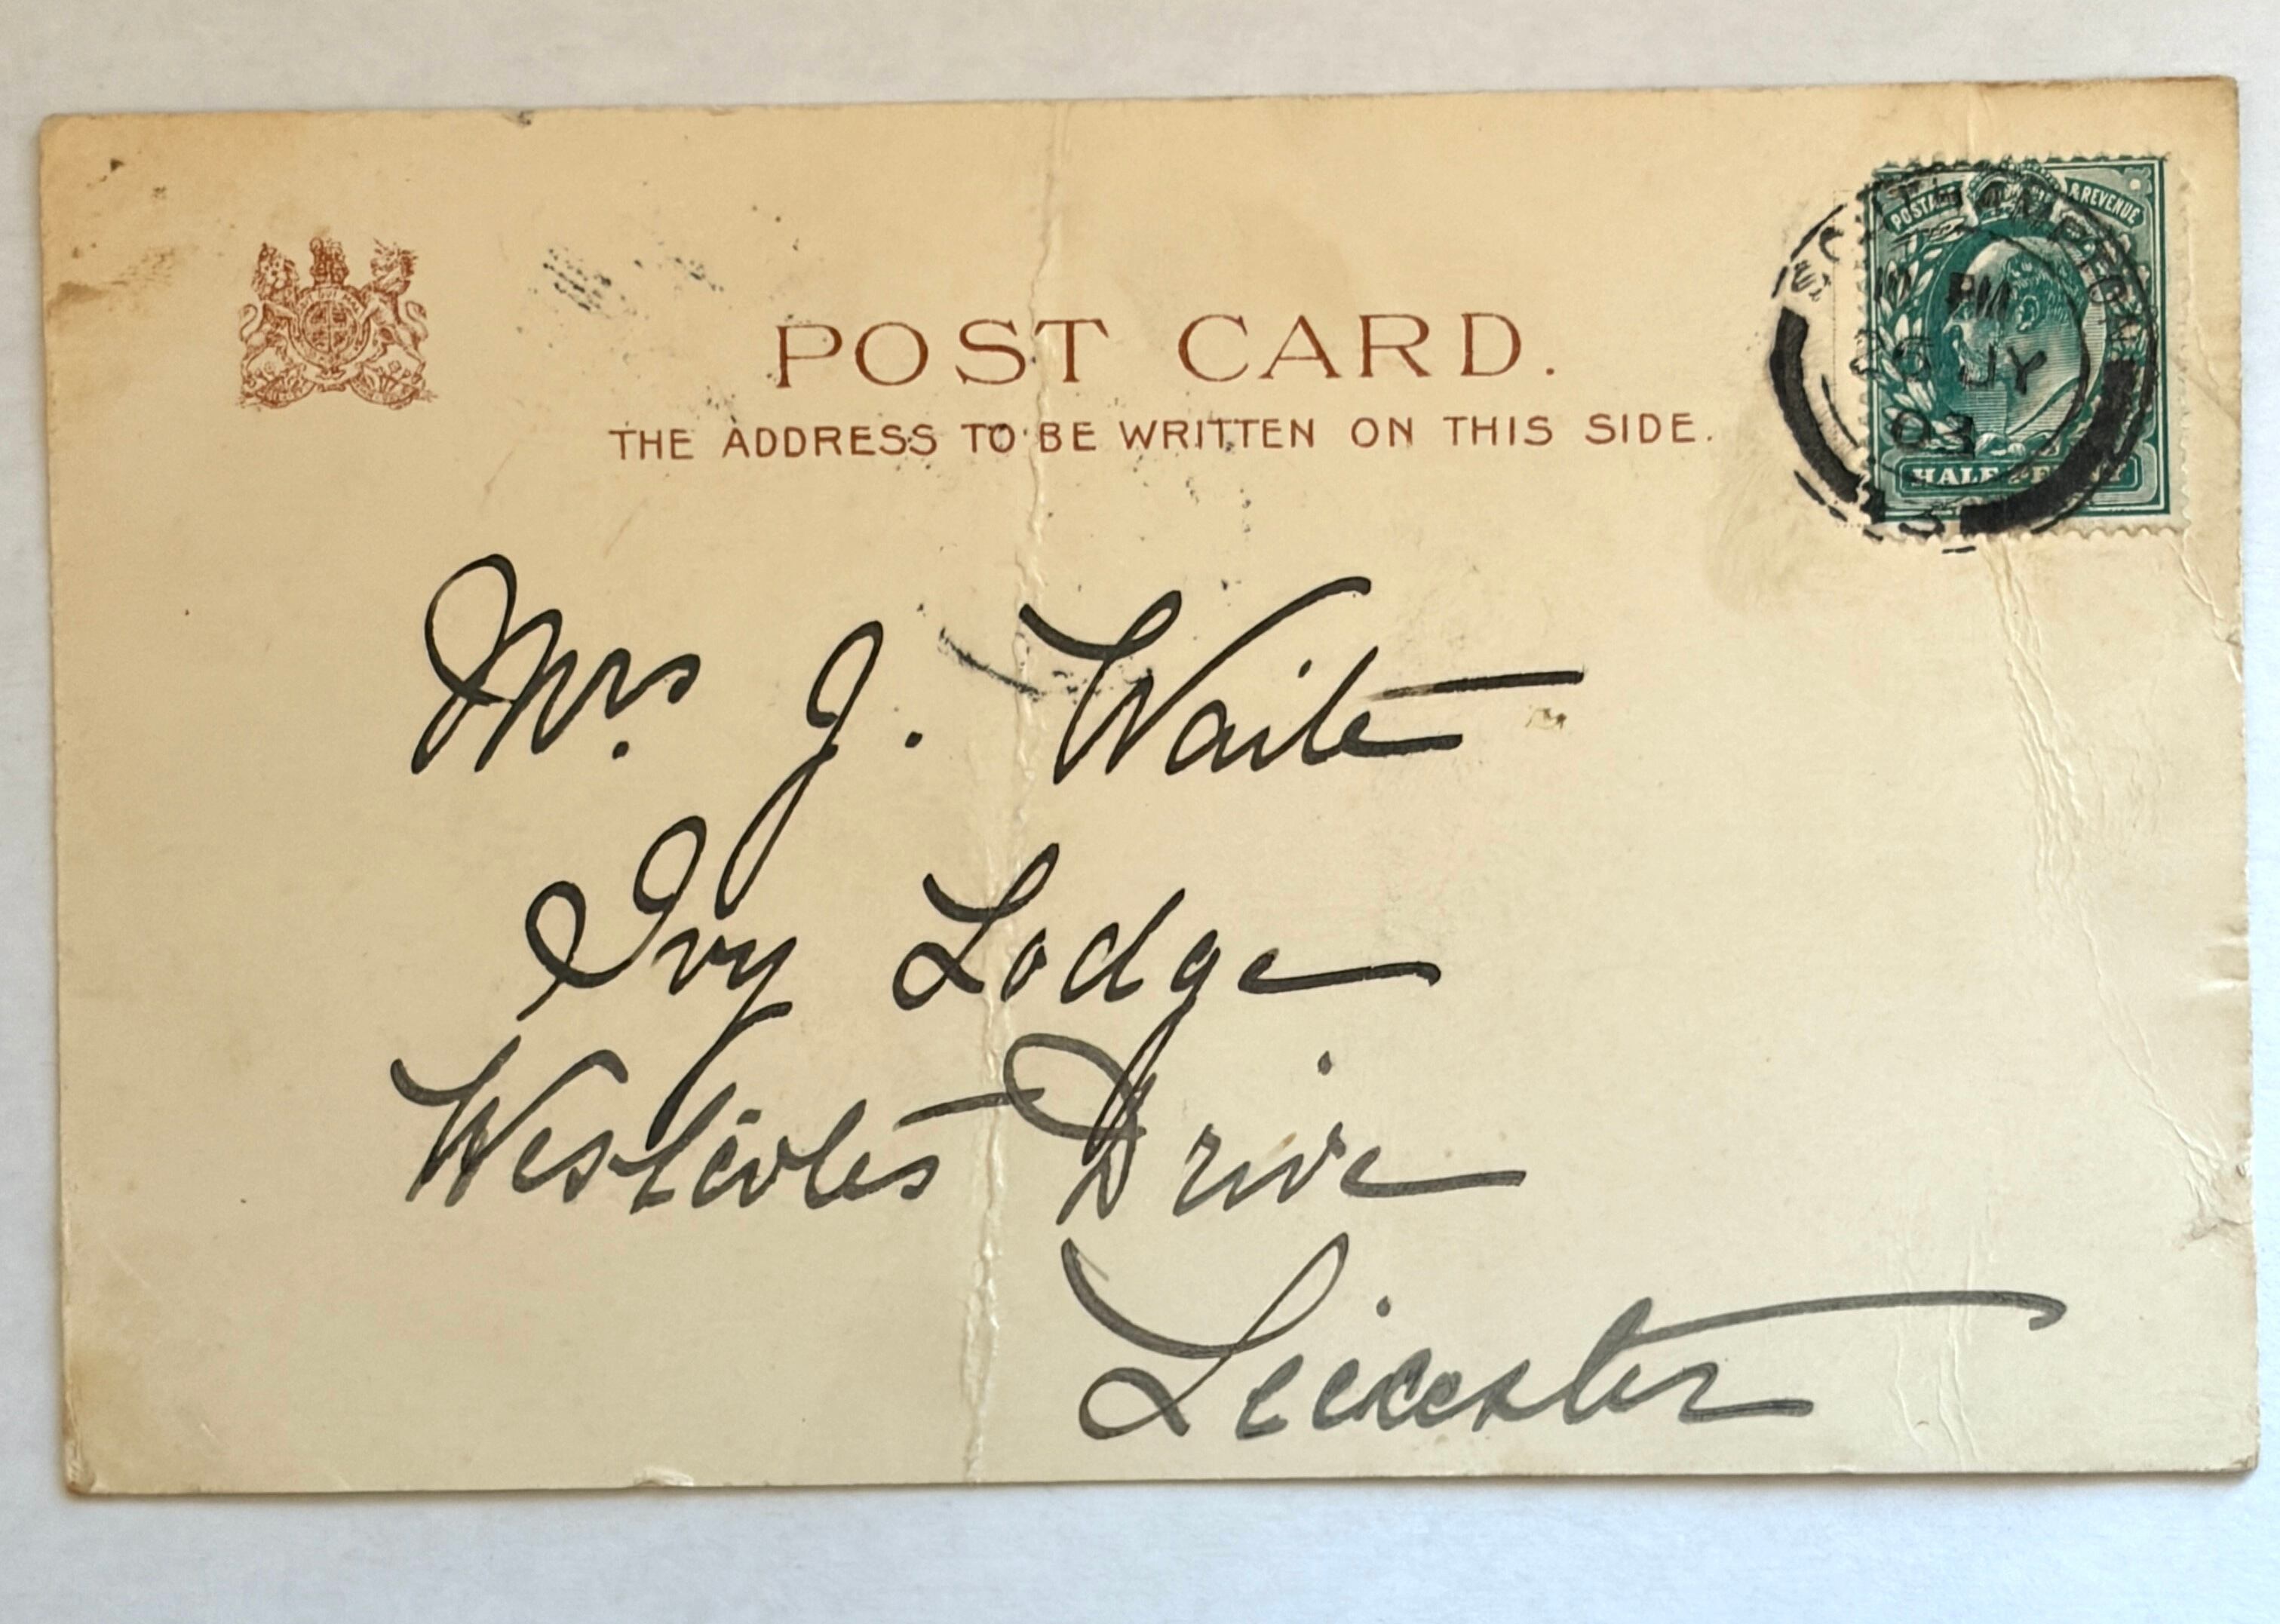 POST CARD.
THE ADDRESS TO BE WRITTEN ON THIS SIDE.
POSTAGE & REVENUE
SOUTHAMPTON
PM
25 JY
03
HALFPENNY
Mrs. J. Waite
Ivy Lodge
Westcotes Drive
Leicester